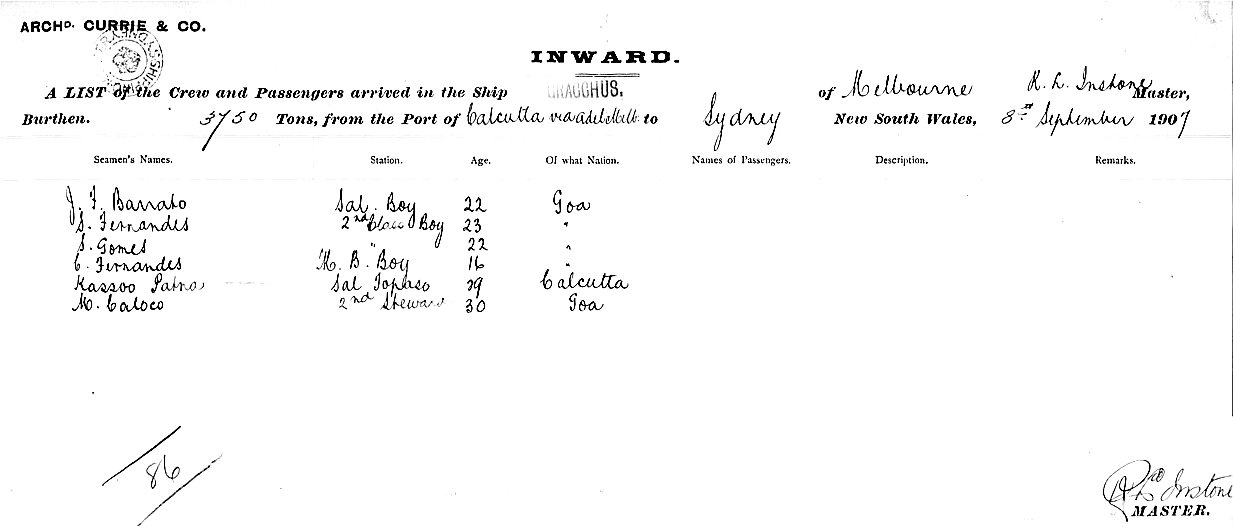 ARCHD. CURRIE & CO.
INWARD.
A LIST of the Crew and Passengers arrived in the Ship GRACCHUS. of Melbourne R. L. Instone Master,
Burthen. 3750 Tons, from the Port of Calcutta via Adel. Melb. to Sydney New South Wales, 8th September 1907
Seamen's Names. Station. Age. Of what Nation. Names of Passengers. Description. Remarks.
J. F. Barrato Sal. Boy 22 Goa
S. Fernandes 2nd Class Boy 23 "
S. Gomes " 22 "
C. Fernandes M. B. Boy 16 "
Kassoo Sal Topaso 29 Calcutta
M. Caloco 2nd Steward 30 Goa
86
R L Instone
MASTER.